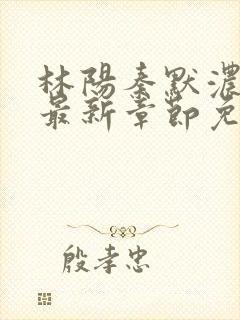 林陽秦默濃
最新章節免
殷孝忠